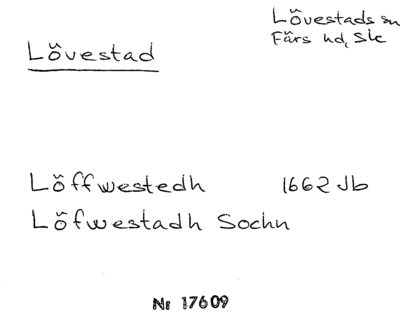 Lövestads sn
Färs hd, Slc
Lövestad
Löffwestedh 1662 Jb
Löfwestadh Sochn
Nr 17609